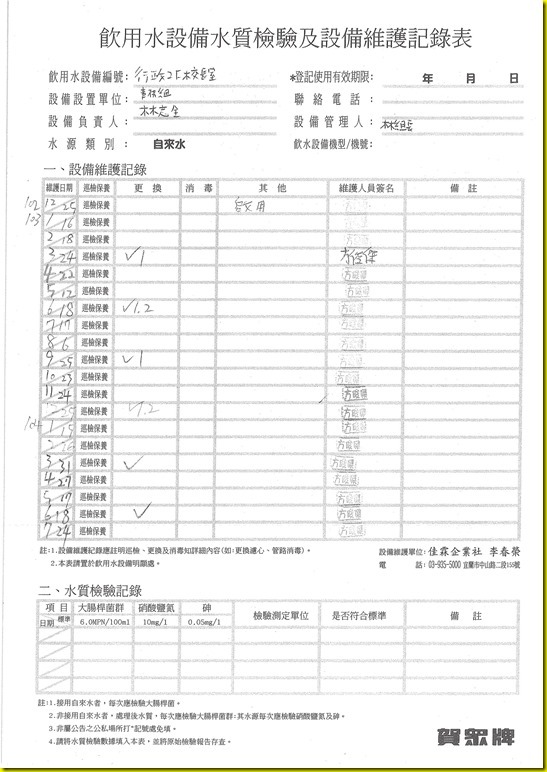 飲用水設備水質檢驗及設備維護記錄表
飲用水設備編號： *登記使用有效期限： 年 月 日
設備設置單位： 事務組 聯絡電話：
設備負責人： 林志全 設備管理人：
水源類別： 自來水 飲水設備機型/機號：
一、設備維護記錄
維護日期 巡檢保養 更換 消毒 其他 維護人員簽名 備註
102 12/25 巡檢保養
103 1/16 巡檢保養
2/18 巡檢保養
3/24 巡檢保養 ✓1
4/22 巡檢保養
5/12 巡檢保養
6/18 巡檢保養 ✓1.2
7/17 巡檢保養
8/6 巡檢保養
9/25 巡檢保養 ✓1
10/23 巡檢保養
11/24 巡檢保養
12/25 巡檢保養 ✓1.2
104 1/15 巡檢保養
巡檢保養
3/31 巡檢保養 ✓
4/27 巡檢保養
5/19 巡檢保養
6/18 巡檢保養 ✓
7/24 巡檢保養
註:1.設備維護紀錄應註明巡檢、更換及消毒知詳細內容(如:更換濾心、管路消毒)。 設備維護單位: 佳霖企業社 李春榮
2.本表請置於飲用水設備明顯處。 電 話: 03-935-5000 宜蘭市中山路二段155號
二、水質檢驗記錄
項目 大腸桿菌群 硝酸鹽氮 砷 檢驗測定單位 是否符合標準 備註
日期 標準 6.0MPN/100ml 10mg/l 0.05mg/l
註:1.接用自來水者，每次應檢驗大腸桿菌。
2.非接用自來水者。處理後水質，每次應檢驗大腸桿菌群:其水源每次應檢驗硝酸鹽氮及砷。
3.非屬公告之公私場所打*記號處免填。
4.請將水質檢驗數據填入本表，並將原始檢驗報告存查。
賀眾牌